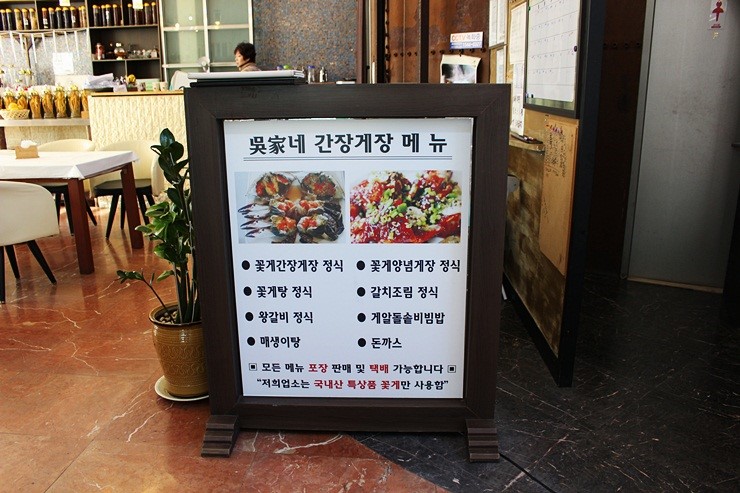 吳家네 간장게장 메뉴
● 꽃게간장게장 정식 ● 꽃게양념게장 정식
● 꽃게탕 정식 ● 갈치조림 정식
● 왕갈비 정식 ● 게알돌솥비빔밥
● 매생이탕 ● 돈까스
▣ 모든 메뉴 포장 판매 및 택배 가능합니다 ▣
“저희업소는 국내산 특상품 꽃게만 사용함”